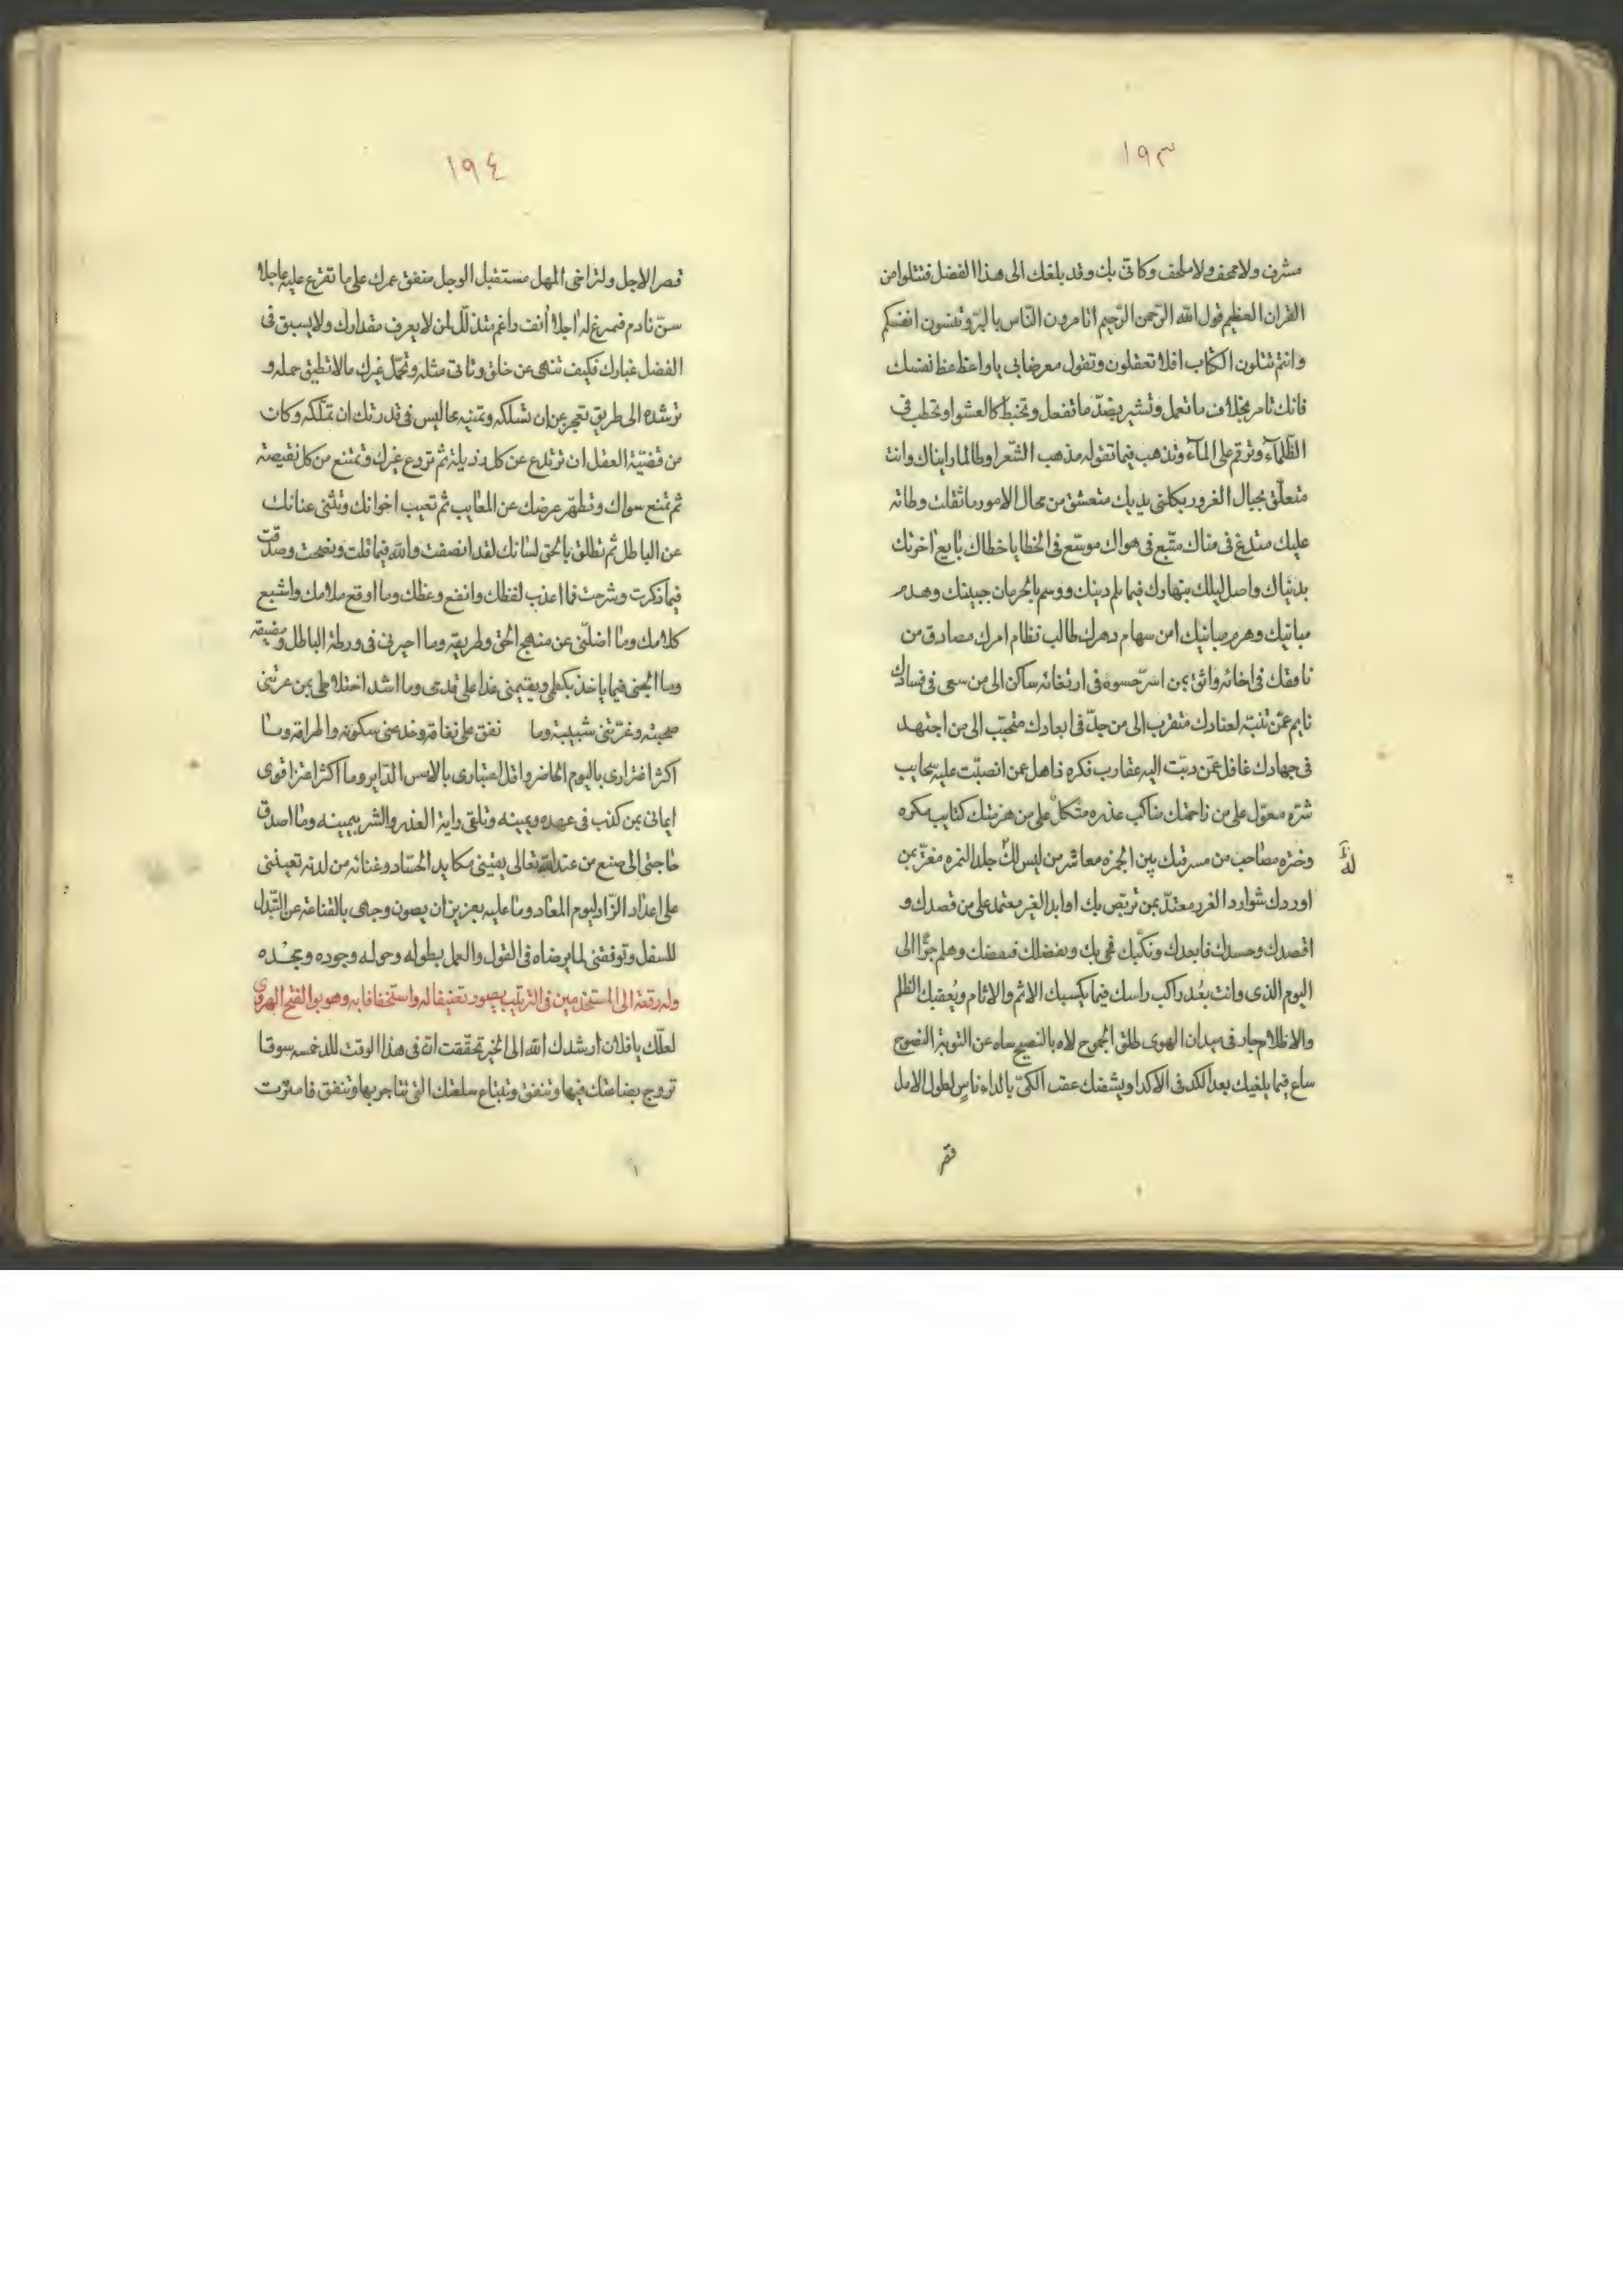 ١٩٣
مسرف ولا مجحف ولا ملحف وكانى بك وقد بلغك الى هذا الفضل فتتلوا من
القران العظيم قول الله الرّحمن الرّحيم اتامرون النّاس بالبرّ وتنسون انفسكم
وانتم تتلون الكتاب افلا تعقلون وتقول معرضا بى ياواعظ عظ نفسك
فانك تامر بخلاف ما تعمل وتشير بضدّ ما تفعل وتخبط كالعشوا وتحطب فى
الظّلمآء وترقم على المآء وتذهب فيما تقوله مذهب الشّعرا وطالما رايناك وانت
متعلّق بحبال الغرور بكلتى يديك متعشق من محال الامور ما ثقلت وطاته
عليك متدرغ فى مناك متّبع فى هواك موسّع فى الخطايا خطاك بايع اخرتك
بدنياك واصل ليلك بنهارك فيما يلم دينك ووسم بالحرمان جبينك وهدم
مبانيك وهرم امن سهام دهرك طالب نظام امرك مصادق من
نافقك فى اخائه واثق بمن اسرّ حسوه فى ارتغائه ساكن الى من سعى فى فسادك
نايم عمّن تنبّه لعنادك متقرب الى من جدّ فى ابعادك متحبّب الى من اجتهد
فى جهادك غافل عمّن دبّت اليه عقارب فكره ذاهل عن انصبّت عليه سحايب
شرّه معوّل على من زاحمتك مناكب عذره متكل على من هزمتك كتايب مكره
وختره مصاحب من مسرقبك بين الجمره معاشر من ليس لك جلد النمره مغترّ بمن
لك
اوردك شوارد الغرر معتدّ بمن تربّص بك اوابد الغير معتمد على من قصدك و
اقصدك وحسدك فابعدك ونكبك فحى بك وبفضلك وهلم جرّا الى
اليوم الذى وانت بعُد راكب راسك فيما يكسبك الاثم والاثام ويُعقبك الظلم
والاظلام جار فى ميدان الهوى طلق الجموح لاه بالنصيح ساه عن التوبة النصوح
ساع فيما يلغيك بعد الكد فى الاكداء ويشفك عقب الكىّ بالداء ناسٍ لطول الامل
قصر
١٩٤
قصر الاجل ولتراخى المهل مستقبل الوجل منفق عمرك على ما تقرع عليه عاجلا
سنّ نادم فيمرغ له اجلا أنف راغم متذلّل لمن لا يعرف مقدارك ولا يسبق فى
الفضل غبارك فكيف تنهى عن خلق وتاتى مثله وتحمّل غيرك ما لا تطيق حمله و
ترشده الى طريق تعجز عن ان تسلكه وتمنيه بما ليس فى قدرتك ان تملكه وكان
من قضيّة العقل ان ترتدع عن كل رذيلة ثم تردع غيرك وتمتنع من كل نقيصة
ثم تمنع سواك وتطهّر عرضك عن المعايب ثم تعيب اخوانك وتثنى عنانك
عن الباطل ثم تطلق بالحق لسانك لقد انصفت والله فيما قلت ونصحت وصدقت
فيما ذكرت وشرحت فما اعذب لفظك وانفع وعظك وما اوقع ملامك واشبع
كلامك وما اضلّنى عن منهج الحق وطريقه وما احيرنى فى ورطة الباطل ومضيقه
وما الجنى فيما ياخذ بكظمى ويقيمنى غدا على قدمى وما اشد اختلاطى بمن عرتنى
صحبته وغرّتنى شبيبته وما نفق على نفاقه وخدعنى سكونه واطراقه وما
اكثر اغترارى باليوم الحاضر واقل اعتبارى بالامس الدّابر وما اكثر اعتزا قوى
ايمانى بمن كذب فى عهده ويمينه وتلقى راية الغدر والشر بيمينه وما اصدق
حاجتى الى صنع من عند الله تعالى يقينى مكايد الحسّاد وغنائه من لدنه تعيننى
على اعداد الزّاد ليوم المعاد وما عليه بعزيز ان يصون وجهى بالقناعة عن التبّدل
للسفل وتوفقنى لما يرضاه فى القول والعمل بطوله وحوله وجوده ومجده
وله رقعة الى المستخدمين فى الترتيب بصور تعنيفا له واستخفافا به وهو بوالفتح الهروى
لعلّك يا فلان ارشدك الله الى الخير تحققت ان فى هذا الوقت للدخمسه سوقا
تروج بضاعتك فيها وتنفق وتبتاع سلعتك التى تتاجر بها وتنفق فامترت